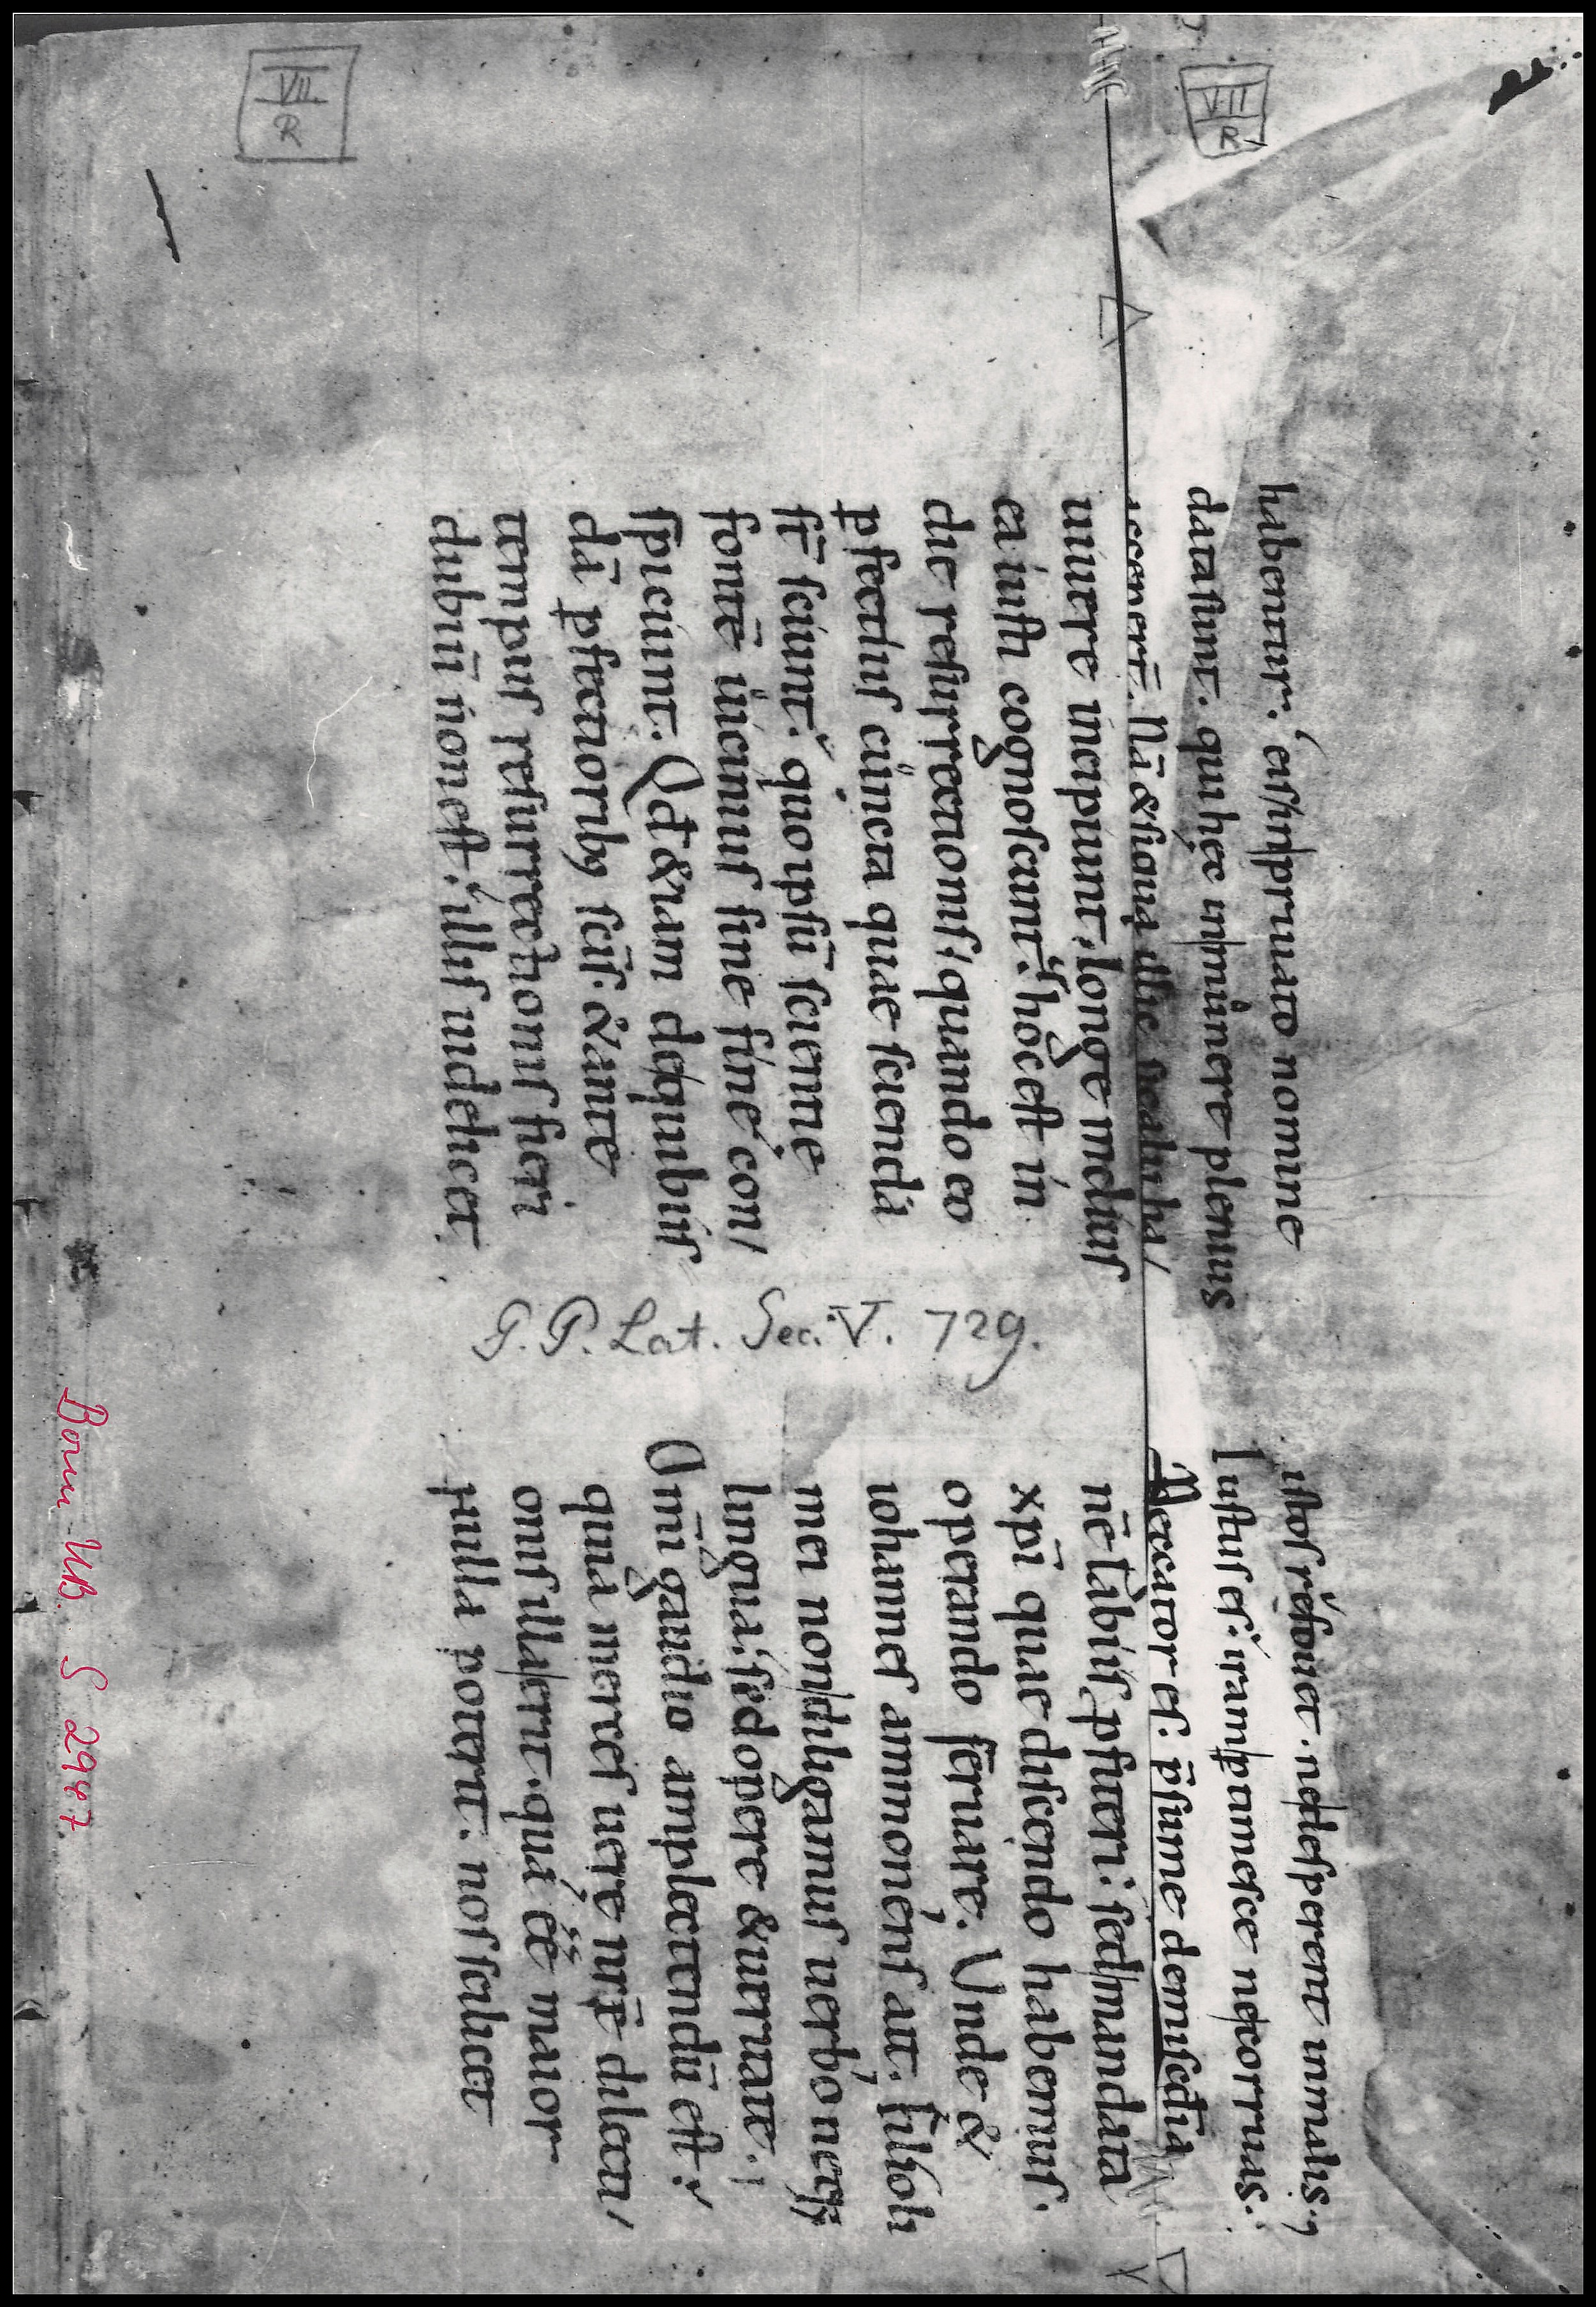 VII.
R
VII
R
habentur. eis inpriuato nomine
data sunt. qui hęc inmunere plenius
acceper̄. Nā & siqui dhc
uiuere incipiunt, longe melius
ea iusti cognoscunt. hoc est in
die resurrectionis, quando eo
ꝑfectius cuncta quae scienda
st̄ sciunt. quo ipsū scientię
fontē uicinius sine fine con/
spiciunt. Qd & iam de quibus
dā ꝑfectiorib; scīs. & ante
tempus resurrectionis fieri
dubiū non est. illis uidelicet
P. P. Lat. Sec. V. 729.
istos refouet. ne desperent in malis.
Iustus es. iram pertimesce ne corruas.
Peccator es. p̄sume de mīscdīa
nē labiis ꝓfiteri. sed mandata
xp̄i quae discendo habemus.
operando seruare. Unde &
iohannes ammonens ait. filioli
mei non diligamus uerbo neq;
lingua. sed opere & ueritate.
Om̄i gaudio amplectendū est.
quia merces uerę nr̄ę dilecti/
onis illa erit. qua ēē maior
nulla poterit. nos scilicet
Bonn UB S 2947